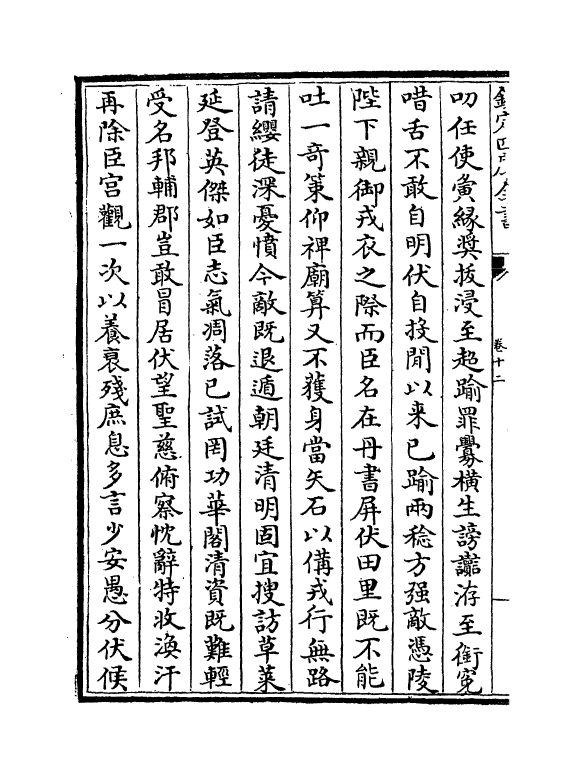 欽定四庫全書
卷十二
叨任使夤緣奬拔浸至超踰罪釁橫生謗讟游至銜寃
唶舌不敢自明伏自投閒以来已踰兩稔方强敵憑陵
陛下親御戎衣之際而臣名在丹書屏伏田里既不能
吐一奇策仰裨廟算又不獲身當矢石以備戎行無路
請纓徒深憂憤今敵既退遁朝廷清明固宜搜訪草萊
延登英傑如臣志氣凋落已試罔功華閣清資既難輕
受名邦輔郡豈敢冒居伏望聖慈俯察忱辭特收渙汗
再除臣宫觀一次以養衰殘庶息多言少安愚分伏候